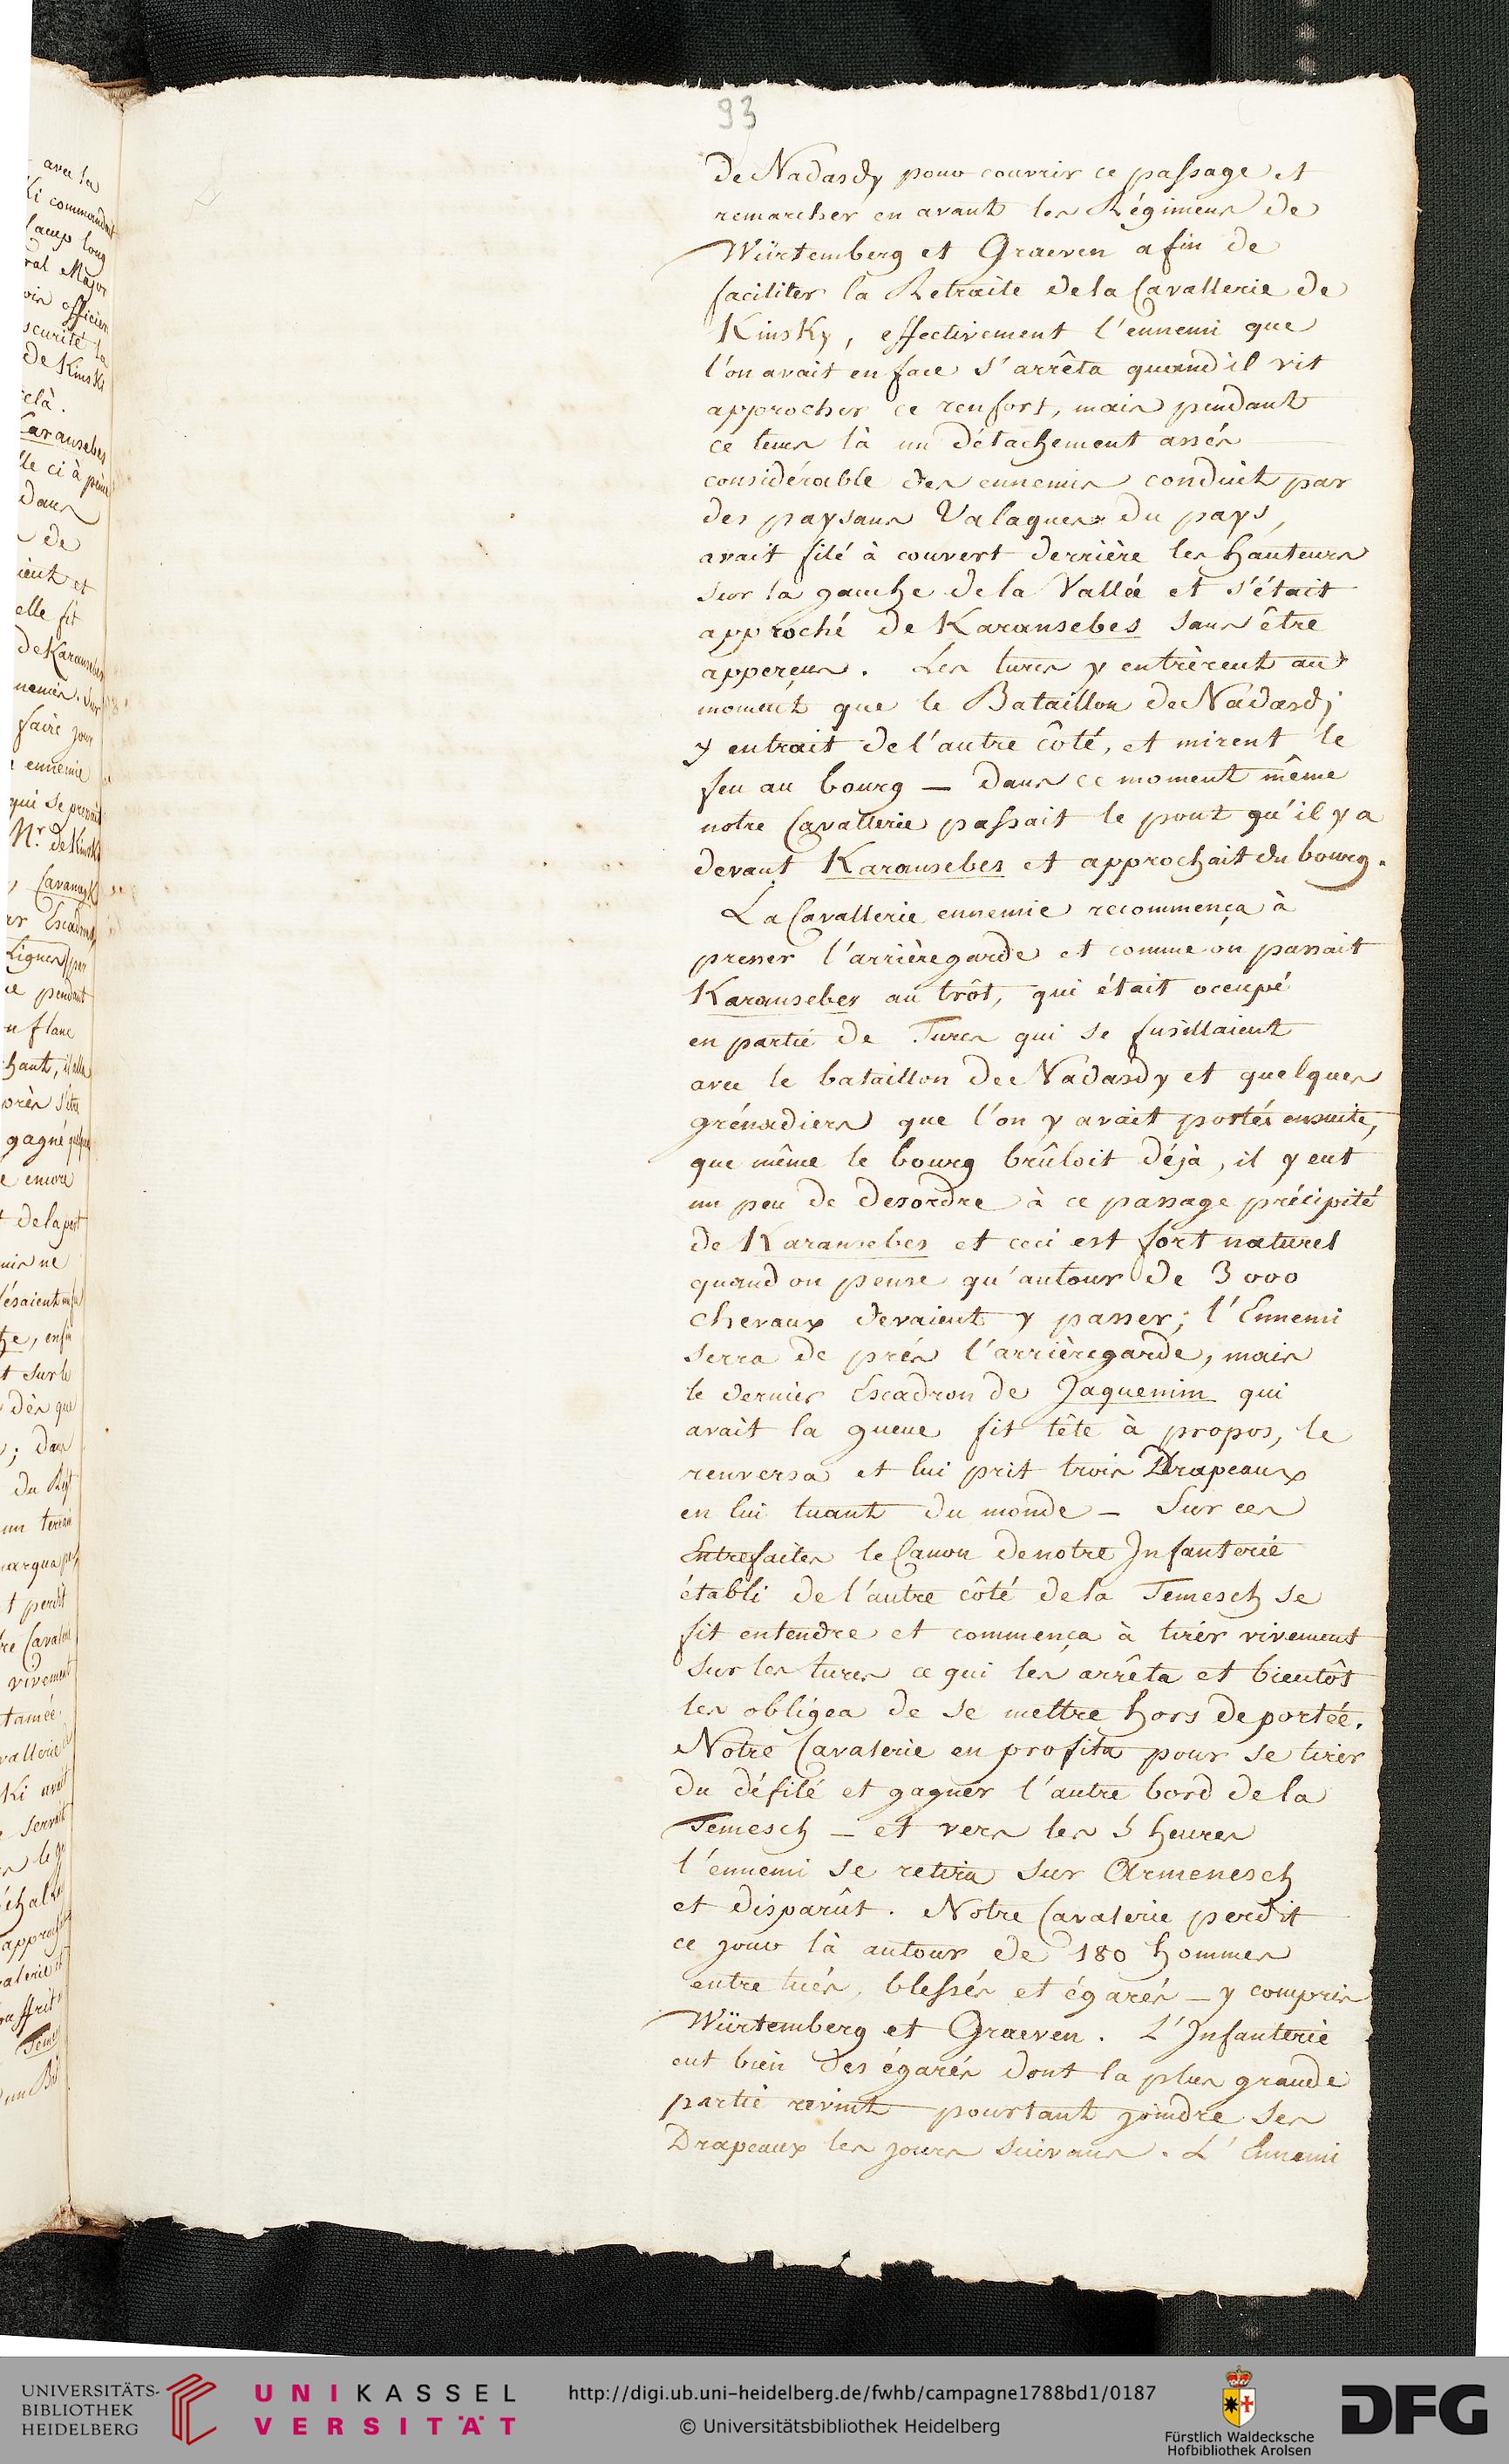 93
de Nadasdy pour couvrir ce passage et
remarcher en avant les Régimens de
Würtemberg et Graeven afin de
faciliter la Retraite de la Cavallerie de
Kinsky, effectivement l'ennemi que
l'on avait en face s'arrêta quand il vit
approcher ce renfort, mais pendant
ce tems là un détachement assés
considérable des ennemis conduit par
des paysans Valaques du pays,
avait filé à couvert derrière les hauteurs
sur la gauche de la Vallée et s'était
approché de Karansebes sans être
apperçus. Les turcs y entrèrent au
moment que le Bataillon de Nadasdj
y entrait de l'autre côté, et mirent le
feu au bourg — dans ce moment même
notre Cavallerie passait le pont qu'il y a
devant Karansebes et approchait du bourg.
La Cavallerie ennemie recommença à
presser l'arrièregarde et comme on passait
Karansebes au trôt, qui était occupé
en partie de Turcs qui se fusillaient
avec le bataillon de Nadasdy et quelques
grénadiers que l'on y avait postés ensuite,
que même le bourg brûloit déjà, il y eut
un peu de desordre à ce passage précipité
de Karansebes et ceci est fort naturel
quand on pense qu'autour de 3000
chevaux devaient y passer; l'Ennemi
serra de près l'arrièregarde, mais
le dernier Escadron de Jaquemin qui
avait la queue fit tête à propos, le
renversa et lui prit trois Drapeaux
en lui tuant du monde — Sur ces
Entrefaites le Canon de notre Infanterie
établi de l'autre côté de la Temesch se
fit entendre et commença à tirér vivement
sur les turcs ce qui les arrêta et bientôt
les obligea de se mettre hors de portée.
Notre Cavalerie en profita pour se tirer
du défilé et gagner l'autre bord de la
Temesch — et vers les 5 heures
l'ennemi se retira sur Armenesch
et disparût. Notre Cavalerie perdit
ce jour là autour de 180 hommes
entre tués, blessés et égarés — y compris
Würtemberg et Graeven. L'Infanterie
eut bien des égarés dont la plus grande
partie revint pourtant joindre ses
Drapeaux les jours suivans. L'Ennemi
UNIVERSITÄTS-
BIBLIOTHEK
HEIDELBERG
UNIKASSEL
VERSITÄT
http://digi.ub.uni-heidelberg.de/fwhb/campagne1788bd1/0187
© Universitätsbibliothek Heidelberg
Fürstlich Waldecksche
Hofbibliothek Arolsen
DFG